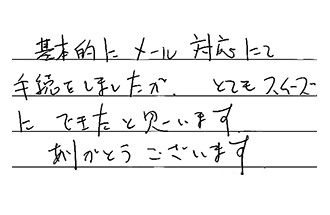 基本的にメール対応にて
手続をしましたが、とてもスムーズ
にできたと思います
ありがとうございます